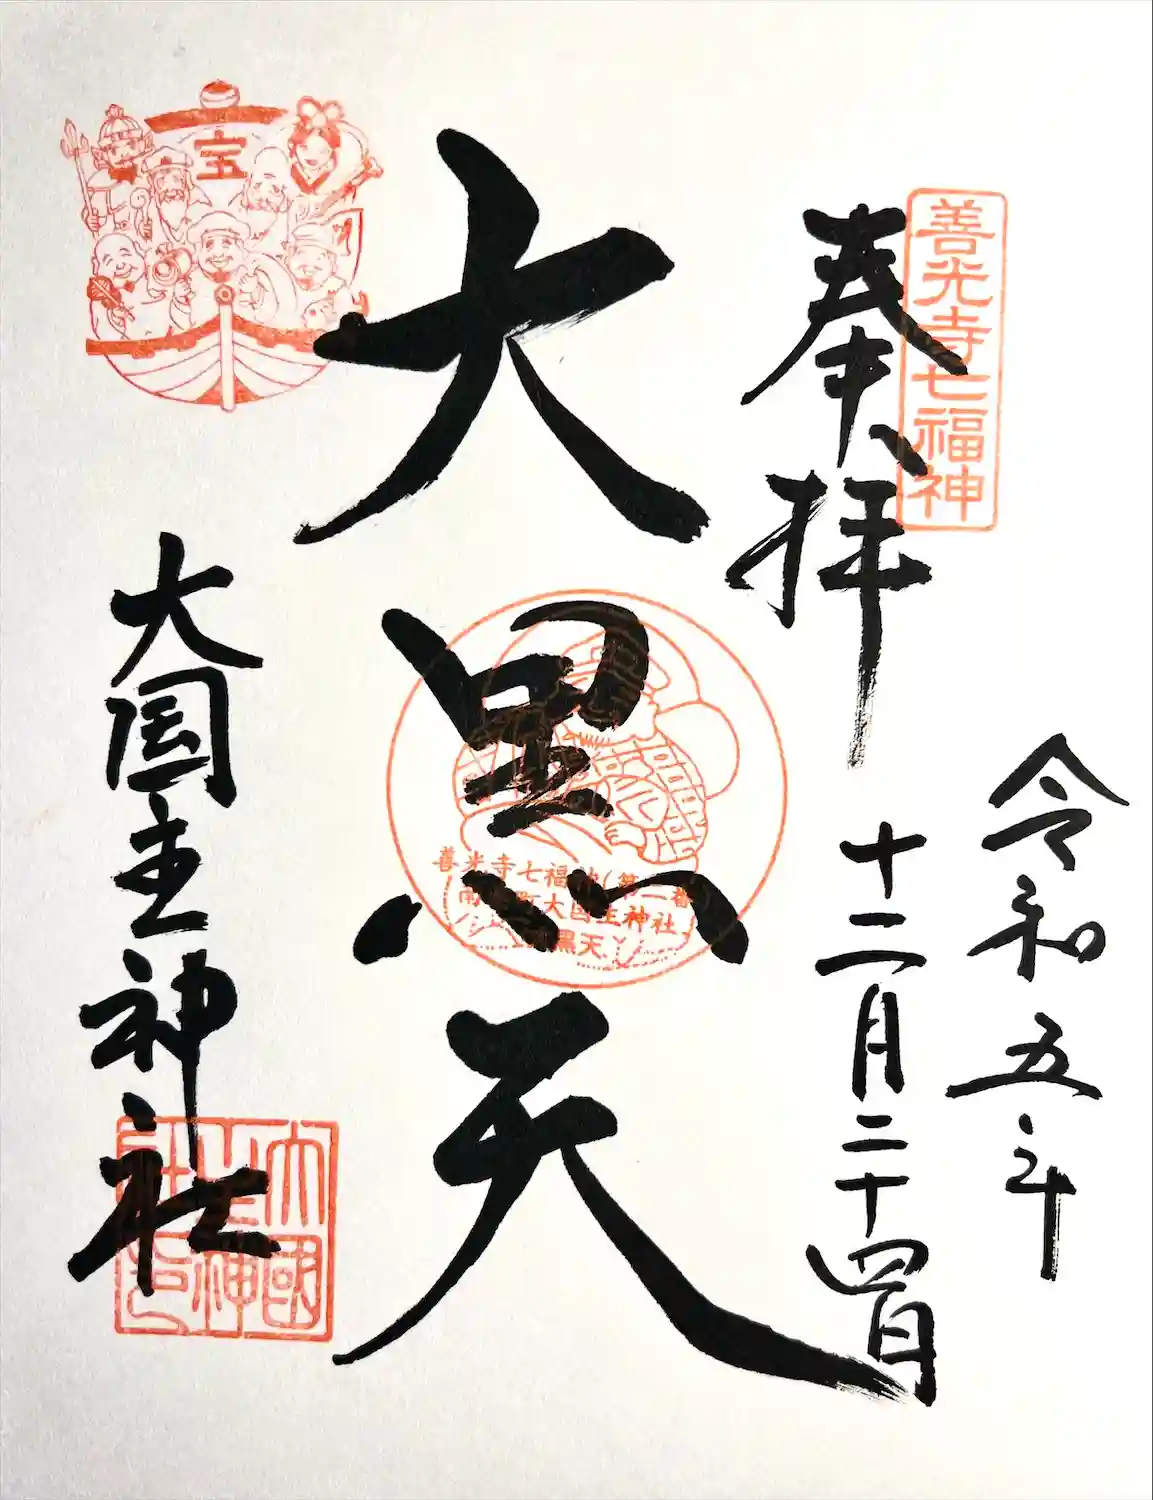 令和五年
十二月二十四日
善光寺七福神
奉拝
大黒天
善光寺七福神(第二番)
大国主神社
黒天
宝
大国主神社
大國主神社